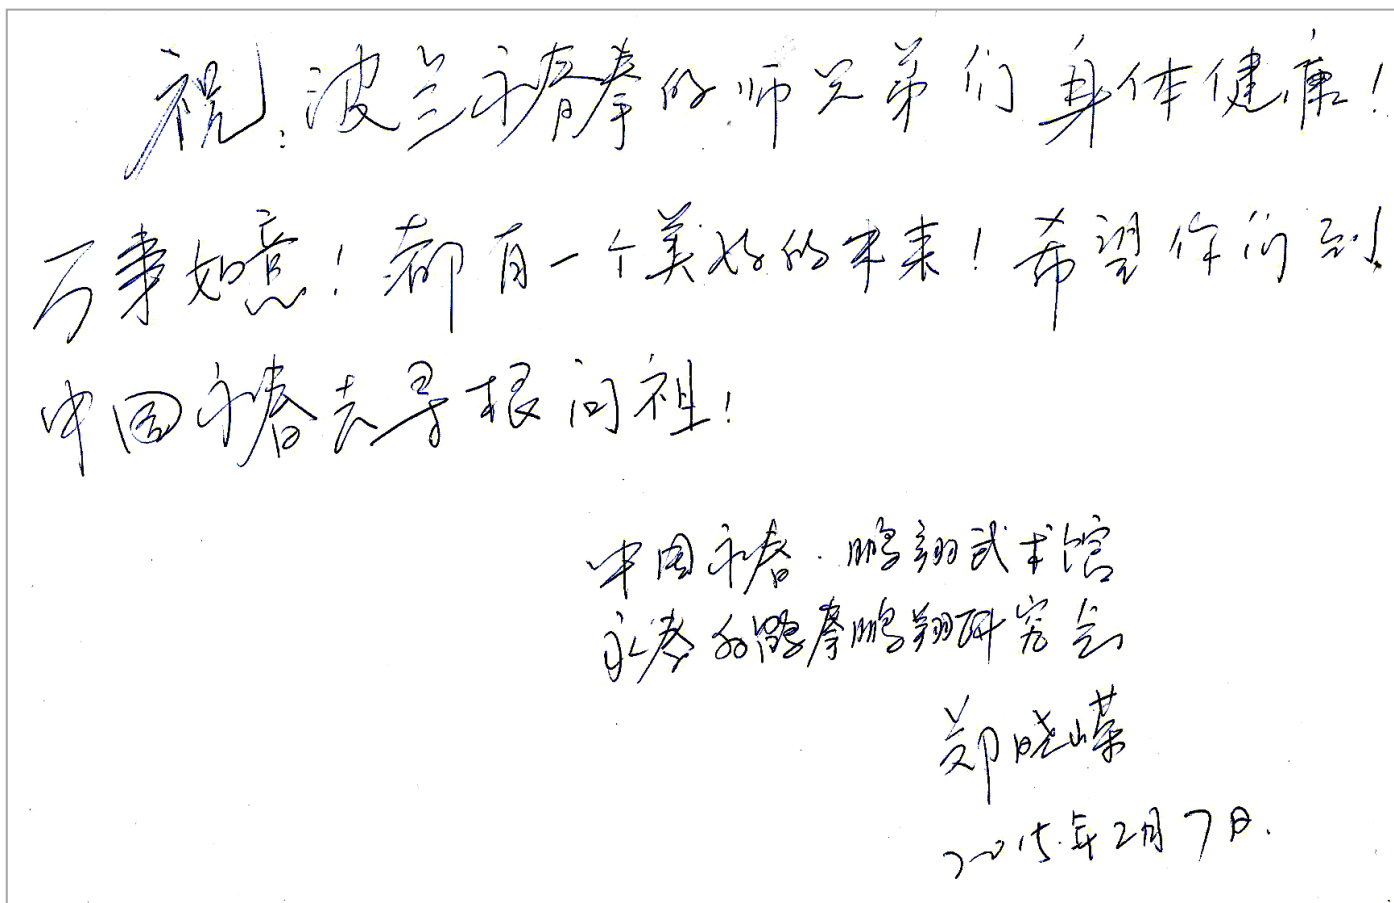 祝:波兰永春拳的师兄弟们身体健康!
万事如意!都有一个美好的未来!希望你们到
中国永春去寻根问祖!
中国永春·鹏翔武术馆
永春白鹤拳鹏翔研究会
郑晓嵘
2015年2月7日.